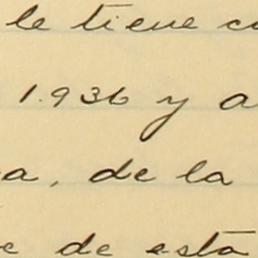 le tiene co
1.936 y a
a, de la
e de esta